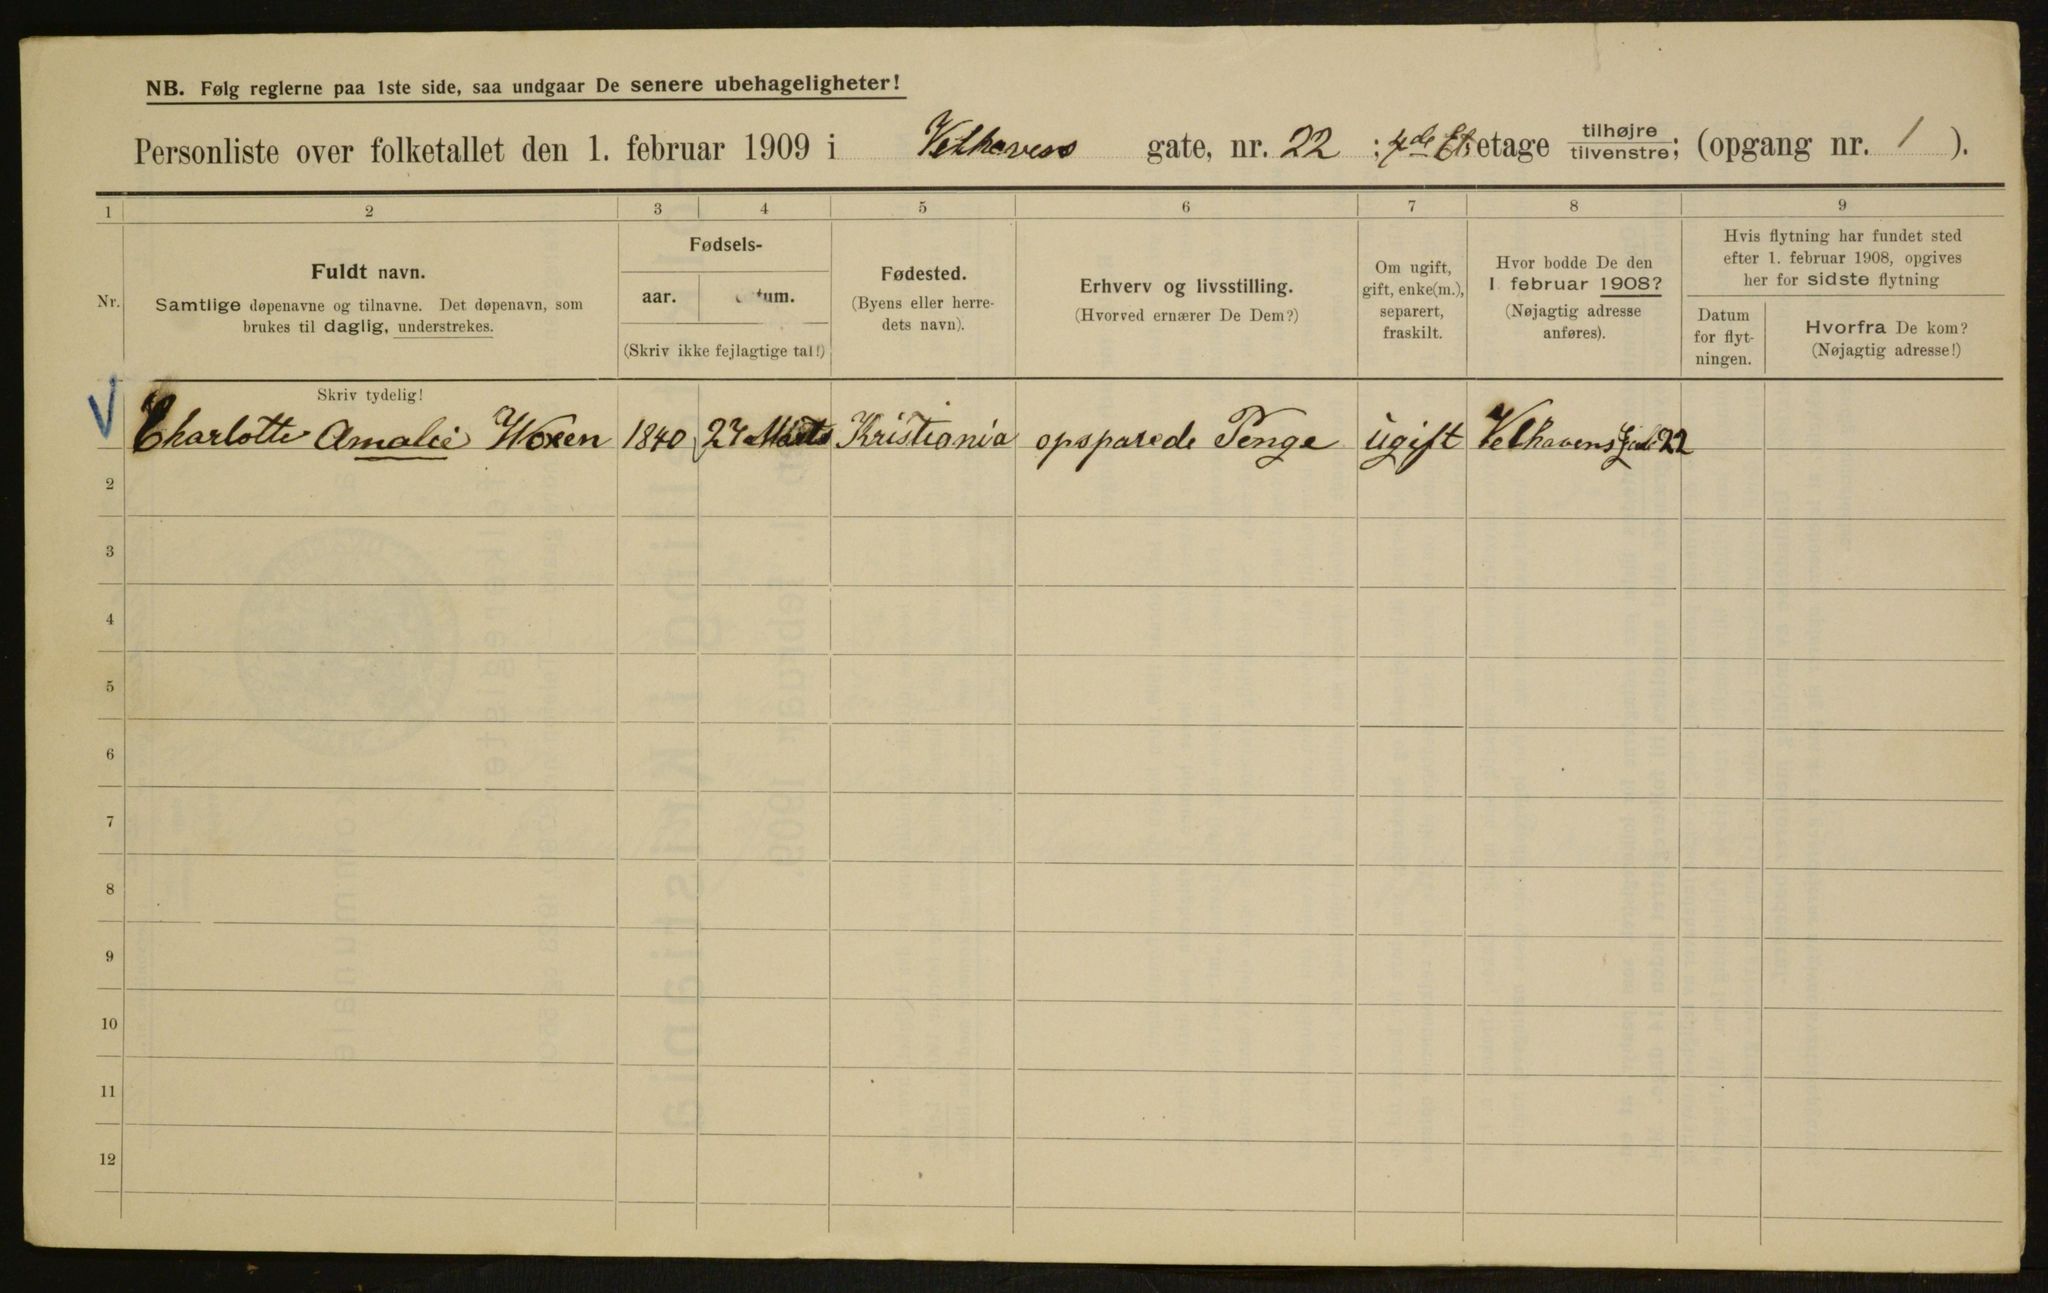 NB. Følg reglerne paa 1ste side, saa undgaar De senere ubehageligheter!
Personliste over folketallet den 1. februar 1909 i Velhavens gate, nr. 22 ; 4de Et. etage tilhøjre tilvenstre; (opgang nr. 1 ).
1 2 3 4 5 6 7 8 9
Nr.
Fuldt navn.
Samtlige døpenavne og tilnavne. Det døpenavn, som
brukes til daglig, understrekes.
Skriv tydelig!
Fødsels-
aar. tum.
(Skriv ikke fejlagtige tal!)
Fødested.
(Byens eller herre-
dets navn).
Erhverv og livsstilling.
(Hvorved ernærer De Dem?)
Om ugift,
gift, enke(m.),
separert,
fraskilt.
Hvor bodde De den
1. februar 1908?
(Nøjagtig adresse
anføres).
Hvis flytning har fundet sted
efter 1. februar 1908, opgives
her for sidste flytning
Datum
for flyt-
ningen.
Hvorfra De kom?
(Nøjagtig adresse!)
Charlotte Amalie Woxen 1840 27 Marts Kristiania opsparede Penge ugift Velhavens Gade 22
2
3
4
5
6
7
8
9
10
11
12